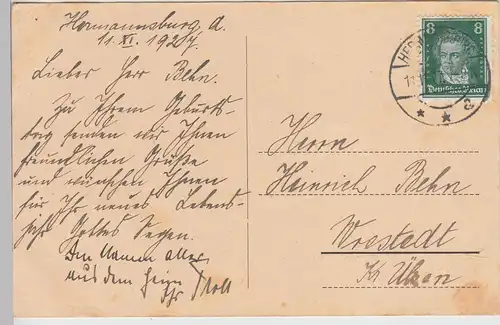 Hermannsburg d.
11. XI. 1927.
Lieber Herr Behn.
Zu Ihrem Geburts-
tag senden wir Ihnen
freundlichen Grüße
und wünschen Ihnen
für Ihr neues Lebens-
jahr Gottes Segen.
Im Namen aller
aus dem Heim
Ihr
8
Deutsches Reich
HER
11.
Herrn
Heinrich Behn
Wrestedt
Kr. Ülzen